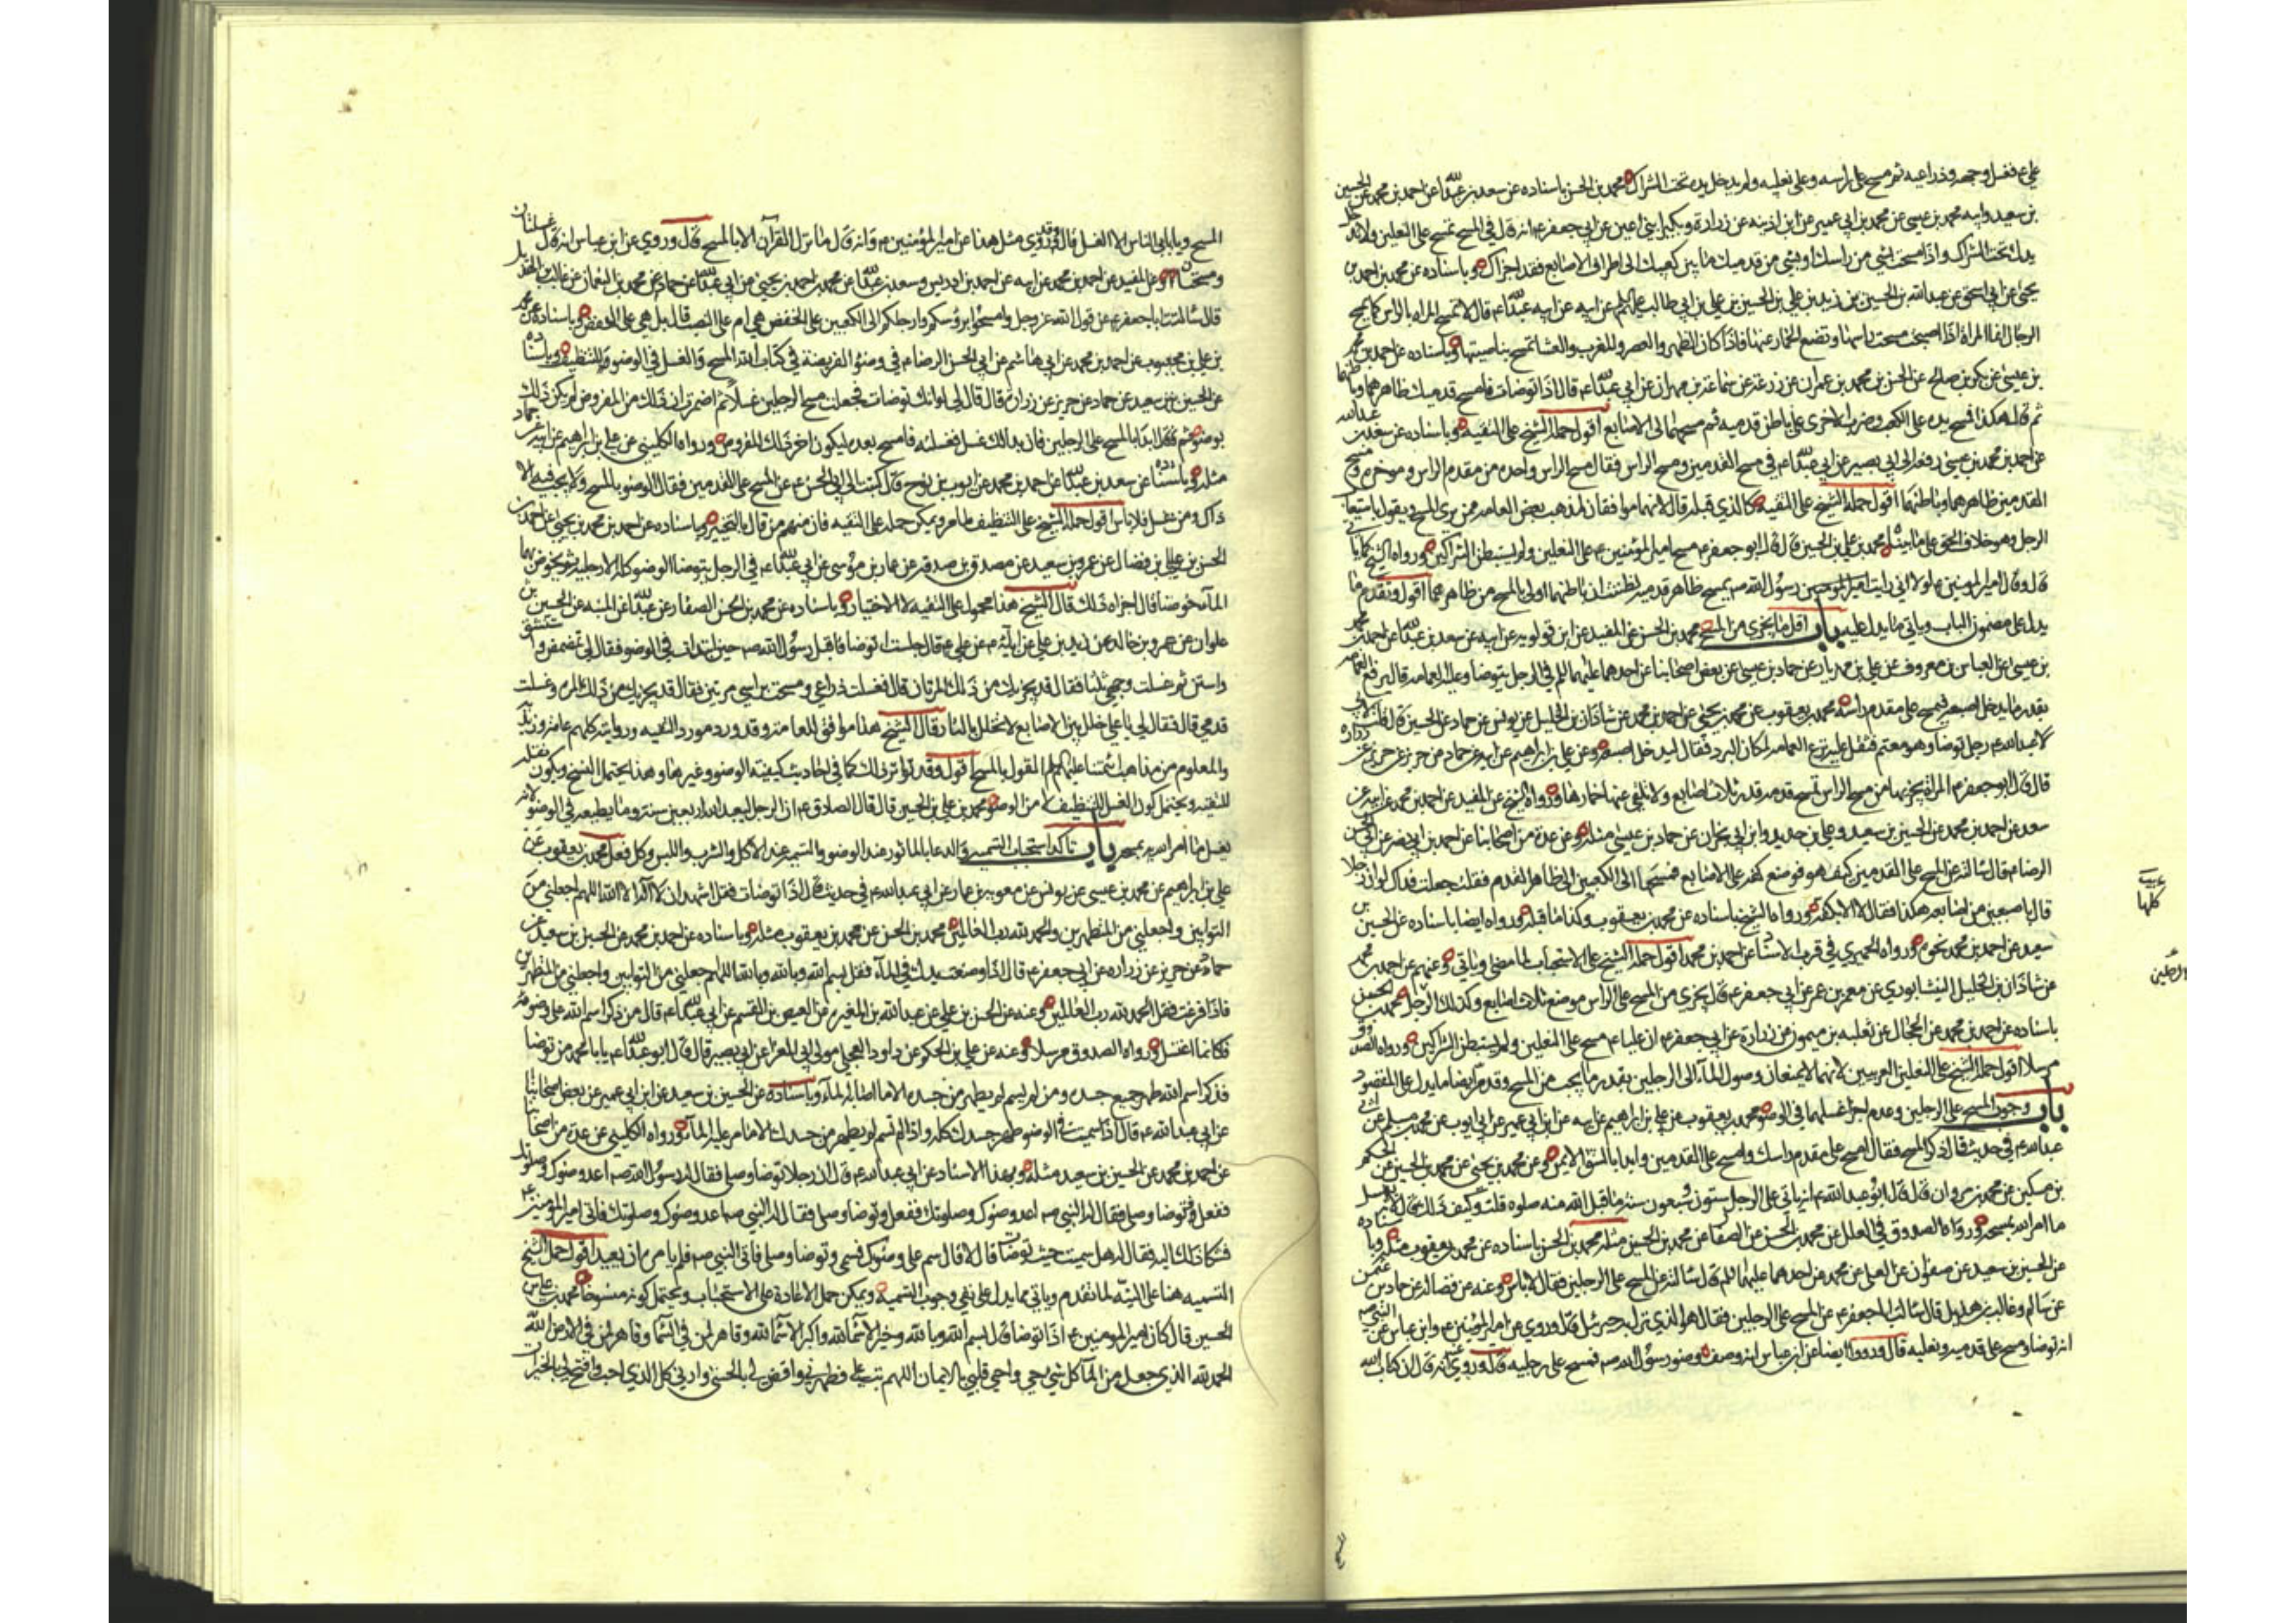 علي ع فغسل وجهه وذراعيه ثم مسح على راسه وعلى نعليه ولم يدخل يده تحت الشراك محمد بن الحسن باسناده عن سعد بن عبدالله عن احمد بن محمد عن الحسين
بن سعيد وابيه محمد بن عيسى عن محمد بن ابي عمير عن ابن اذينه عن زرارة وبكير ابني اعين عن ابي جعفر ع انه قال في المسح تمسح على النعلين ولا تدخل
يدك تحت الشراك واذا مسحت بشي من راسك او بشي من قدميك ما بين كعبيك الى اطراف الاصابع فقد اجزاك وباسناده عن محمد بن احمد بن
يحيى عن ابي اسحق عن عبدالله بن الحسين بن زيد بن علي بن الحسين بن علي بن ابي طالب عن ابيه عن ابي عبدالله ع قال لا تمسح المراه بالراس كما يمسح
الرجال انما المراة اذا اصبحت مسحت راسها وتضع الخمار عنها فاذا كان الظهر والعصر والمغرب والعشا تمسح بناصيتها وباسناده عن احمد بن محمد
بن عيسى عن بكر بن صالح عن الحسن بن محمد بن عمران عن زرعة عن سماعة بن مهران عن ابي عبدالله ع قال اذا توضات فامسح قدميك ظاهرهما وباطنهما
ثم قال هكذا فمسح يده على الكعب وضرب الاخرى على باطن قدميه ثم مسحهما الى الاصابع اقول حمله الشيخ على التقيه وباسناده عن سعد بن عبدالله
عن احمد بن محمد بن عيسى رفعه الى ابي بصير عن ابي عبدالله ع في مسح القدمين ومسح الراس فقال مسح الراس واحده من مقدم الراس ومؤخره ومسح
القدمين ظاهرهما وباطنهما اقول حمله الشيخ على التقيه كالذي قبله قال لانهما موافقان لمذهب بعض العامه ممن يرى المسح ويقول باستيعاب
الرجل وهو خلاف الحق على ما بيناه محمد بن علي بن الحسين قال قال ابو جعفر ع مسح امير المؤمنين ع على النعلين ولم يستبطن الشراكين ورواه الشيخ كما ياتي
قال وقال امير المومنين ع لولا اني رايت رسول الله ص يمسح ظاهر قدميه لظننت ان باطنهما اولى بالمسح من ظاهرهما اقول وتقدم ما
يدل على مضمون الباب وياتي ما يدل عليه باب اقل ما يجزي من المسح محمد بن الحسن عن المفيد عن ابن قولويه عن ابيه عن سعد بن عبدالله عن احمد بن محمد
بن عيسى عن العباس بن معروف عن علي بن مهزيار عن حماد بن عيسى عن بعض اصحابنا عن احدهما عليهما السلم في الرجل يتوضا وعليه العمامه قال يرفع العمامه
بقدر ما يدخل اصبعه فيمسح على مقدم رأسه محمد بن يعقوب عن محمد بن يحيى عن احمد بن محمد عن شاذان بن الخليل عن يونس عن حماد عن الحسين قال قلت
لابي عبدالله ع رجل توضا وهو معتم فثقل عليه نزع العمامه لمكان البرد فقال ليدخل اصبعه وعن علي بن ابراهيم عن ابيه عن حماد عن حريز عن زراره
قال قال ابو جعفر ع المراة يجزيها من مسح الراس ان تمسح مقدمه قدر ثلاث اصابع ولا تلقي عنها خمارها ورواه الشيخ عن المفيد عن احمد بن محمد عن ابيه عن
سعد عن احمد بن محمد عن الحسين بن سعيد وعلي بن حديد وابن ابي نجران عن حماد بن عيسى مثله وعن عدة من اصحابنا عن احمد بن ابي نصر عن ابي الحسن
الرضا ع قال سالته عن المسح على القدمين كيف هو فوضع كفه على الاصابع فمسحها الى الكعبين الى ظاهر القدم فقلت جعلت فداك لو ان رجلا
قال باصبعين من اصابعه هكذا فقال لا الا بكفه ورواه الشيخ باسناده عن محمد بن يعقوب وكذا ما قبله ورواه ايضا باسناده عن الحسين بن
سعيد عن احمد بن محمد نحوه ورواه الحميري في قرب الاسناد عن احمد بن محمد اقول حمله الشيخ على الاستحباب لما مضى وياتي وعنهم عن احمد بن محمد
عن شاذان بن الخليل النيشابوري عن معمر بن عمر عن ابي جعفر ع قال يجزي من المسح على الراس موضع ثلاث اصابع وكذلك الرجل محمد بن الحسن
باسناده عن احمد بن محمد عن الحجال عن ثعلبه بن ميمون عن زرارة عن ابي جعفر ع ان عليا ع مسح على النعلين ولم يستبطن الشراكين ورواه الصدوق
مرسلا اقول حمله الشيخ على النعلين العربيين لانهما لا يمنعان وصول الماء الى الرجلين بقدر ما يجب من المسح وقد مر ايضا ما يدل على المقصود
باب وجوب المسح على الرجلين وعدم اجزاء غسلهما في الوضو محمد بن يعقوب عن علي بن ابراهيم عن ابيه عن ابن ابي عمير عن ابي ايوب عن محمد بن مسلم عن ابي
عبدالله ع في حديث قال ذكر المسح فقال امسح على مقدم راسك وامسح على القدمين وابدا بالشق الايمن وعن محمد بن يحيى عن محمد بن الحسين عن الحكم
بن مسكين عن محمد بن مروان قال قال ابو عبدالله ع انه ياتي على الرجل ستون وسبعون سنة ما قبل الله منه صلوه قلت وكيف ذاك قال لانه يغسل
ما امر الله بمسحه ورواه الصدوق في العلل عن محمد بن الحسن عن الصفار عن محمد بن الحسين مثله محمد بن الحسن باسناده عن محمد بن يعقوب مثله وباسناده
عن الحسين بن سعيد عن صفوان عن العلا عن محمد عن احدهما عليهما السلم قال سالته عن المسح على الرجلين فقال لا باس وعنه عن فضاله عن حماد بن عثمن
عن سالم وغالب بن هذيل قال سالت ابا جعفر ع عن المسح على الرجلين فقال هو الذي نزل به جبرئيل قال وروي عن امير المؤمنين ع وابن عباس عن النبي ص
انه توضا ومسح على قدميه ونعليه قال ورووا ايضا عن ابن عباس انه وصف وضوء رسول الله ص فمسح على رجليه قال وروي عنه انه قال ان كتاب الله
عربيه
كلها
المسح ويابى الناس الا الغسل قال وقد روي مثل هذا عن امير المؤمنين ع وانه قال ما نزل القرآن الا بالمسح قال وروي عن ابن عباس انه قال غسلتان
ومسحتان وعن المفيد عن احمد بن محمد عن ابيه عن احمد بن ادريس وسعد بن عبدالله عن محمد بن احمد بن يحيى عن ابي عبدالله عن حماد عن محمد بن النعمان عن غالب بن الهذيل
قال سالت ابا جعفر ع عن قول الله عز وجل وامسحوا برؤسكم وارجلكم الى الكعبين على الخفض هي ام على النصب قال بل هي على الخفض وباسناده عن محمد
بن علي بن محبوب عن احمد بن محمد عن ابي هاشم عن ابي الحسن الرضا ع في وضوء الفريضة في كتاب الله المسح والغسل في الوضو للتنظيف وباسناده
عن الحسين بن سعيد عن حماد عن حريز عن زراره قال قال لي لو انك توضات فجعلت مسح الرجلين غسلا ثم اضمرت ان ذلك من المفروض لم يكن ذلك
بوضوء ثم قال ابدا بالمسح على الرجلين فان بدا لك غسل فغسلته فامسح بعده ليكون اخر ذلك المفروض ورواه الكليني عن علي بن ابراهيم عن ابيه عن حماد
مثله وباسناده عن سعد بن عبدالله عن احمد بن محمد عن ايوب بن نوح قال كتبت الى ابي الحسن ع عن المسح على القدمين فقال الوضو بالمسح ولا يجب فيه الا
ذاك ومن غسل فلا باس اقول حمله الشيخ على التنظيف لما مر ويمكن حمله على التقيه فان منهم من قال بالتخيير وباسناده عن محمد بن احمد بن يحيى عن احمد بن
الحسن بن علي بن فضال عن عمرو بن سعيد عن مصدق بن صدقه عن عمار بن موسى عن ابي عبدالله ع في الرجل يتوضا الوضو كله الا رجليه ثم يخوض بهما
الماء خوضا قال اجزاه ذلك قال الشيخ هذا محمول على التقيه لا الاختيار وباسناده عن محمد بن الحسن الصفار عن عبدالله بن المنبه عن الحسين بن
علوان عن عمرو بن خالد عن زيد بن علي عن ابآئه ع عن علي ع قال جلست اتوضا فاقبل رسول الله ص حين ابتدات في الوضو فقال لي تمضمض واستنشق
واستن ثم غسلت وجهي ثلثا فقال قد يجزيك من ذلك المرتان قال فغسلت ذراعي ومسحت براسي مرتين فقال قد يجزيك من ذلك المره وغسلت
قدمي قال فقال لي يا علي خلل بين الاصابع لا تخلل بالنار قال الشيخ هذا موافق للعامه وقد ورد مورد التقيه ورواته كلهم عامه وزيديه
والمعلوم من مذاهب ائمتنا عليهم السلم القول بالمسح اقول وقد تواتر ذلك كما في احاديث كيفيه الوضو وغيرها وهذا يحتمل النسخ ويكون نقله
للتقيه ويحتمل كون الغسل للتنظيف لا من الوضو محمد بن علي بن الحسين قال قال الصادق ع ان الرجل ليعبد الله اربعين سنه وما يطيعه في الوضو لانه
يغسل ما امر الله بمسحه باب تاكد استحباب التسميه والدعا بالماثور عند الوضو والتسميه عند الاكل والشرب واللبس وكل فعل محمد بن يعقوب عن
علي بن ابراهيم عن محمد بن عيسى عن يونس عن معويه بن عمار عن ابي عبدالله ع في حديث قال اذا توضات فقل اشهد ان لا اله الا الله اللهم اجعلني من
التوابين واجعلني من المتطهرين والحمد لله رب العالمين محمد بن الحسن عن محمد بن يعقوب مثله وباسناده عن احمد بن محمد عن الحسين بن سعيد عن
حماد عن حريز عن زراره عن ابي جعفر ع قال اذا وضعت يدك في الماء فقل بسم الله وبالله اللهم اجعلني من التوابين واجعلني من المتطهرين
فاذا فرغت فقل الحمد لله رب العالمين وعنه عن الحسن بن علي عن عبدالله بن المغيره عن العيص بن القسم عن ابي عبدالله ع قال من ذكر اسم الله على وضوئه
فكانما اغتسل ورواه الصدوق مرسلا وعنه عن علي بن الحكم عن داود العجلي مولى ابي المغرا عن ابي بصير قال قال ابو عبدالله ع يا با محمد من توضا
فذكر اسم الله طهر جميع جسده ومن لم يسم لم يطهر من جسده الا ما اصابه الماء وباسناده عن الحسين بن سعيد عن ابن ابي عمير عن بعض اصحابنا
عن ابي عبدالله ع قال اذا سميت في الوضو طهر جسدك كله واذا لم تسم لم يطهر من جسدك الا ما مر عليه الماء ورواه الكليني عن عدة من اصحابنا
عن احمد بن محمد عن الحسين بن سعيد مثله وبهذا الاسناد عن ابي عبدالله ع قال ان رجلا توضا وصلى فقال له رسول الله ص اعد وضوئك وصلوتك
ففعل وتوضا وصلى فقال له النبي ص اعد وضوئك وصلوتك ففعل وتوضا وصلى فقال له النبي ص اعد وضوئك وصلوتك فاتى امير المومنين ع
فشكا ذلك اليه فقال له هل سميت حيث توضات قال لا قال سم على وضوئك فسمى وتوضا وصلى فاتى النبي ص فلم يامره ان يعيد اقول حمل الشيخ
التسميه هنا على النيه لما تقدم وياتي مما يدل على نفي وجوب التسميه ويمكن حمل الاعادة على الاستحباب ويحتمل كونه منسوخا محمد بن علي بن
الحسين قال كان امير المومنين ع اذا توضا قال بسم الله وبالله وخير الاسماء لله واكبر الاسماء لله وقاهر لمن في السماء وقاهر لمن في الارض لله
الحمد لله الذي جعل من الماء كل شي حي واحيى قلبي بالايمان اللهم تب علي وطهرني واقض لي بالحسنى وارني كل الذي احب وافتح لي الخيرات